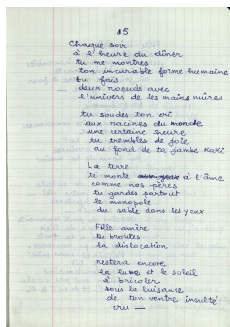 15
Chaque soir
à l'heure du dîner
tu me montres
ton incurable forme humaine
tu fais
deux noeuds avec
l'univers de tes mains mûres
tu soudes ton cri
aux racines du monde
une certaine heure
tu trembles de joie
au fond de ta jambe kaki
La terre
te monte à l'âme
comme nos pères
tu gardes partout
le monopole
du sable dans les yeux
Fille amère
tu broutes
la dislocation
restera encore
la lune et le soleil
à bricoler
sous la luisance
de ton ventre insulté
cru —